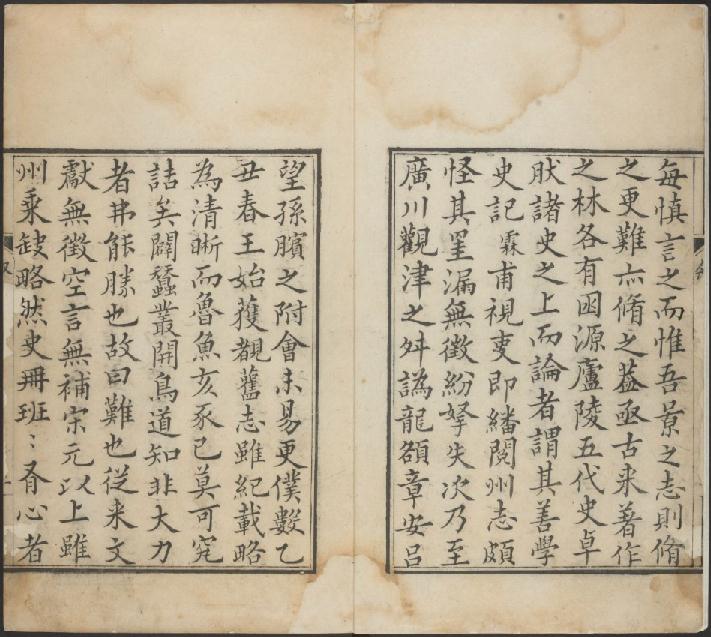 每慎言之而惟吾景之志則脩
之更難亦脩之葢亟古来著作
之林各有囦源廬陵五代史卓
肰諸史之上而論者謂其善學
史記霖甫視叓即繙閱州志頗
怪其罣漏無徵紛拏失次乃至
廣川觀津之舛譌龍頟章安吕
望孫臏之附會未易更僕數乙
丑春王始獲覩舊志雖紀載略
為清晰而魯魚亥豕已莫可究
詰矣闢蠶叢開鳥道知非大力
者弗能勝也故曰難也從来文
獻無徵空言無補宋元以上雖
州乘缺略然史冊班〻有心者